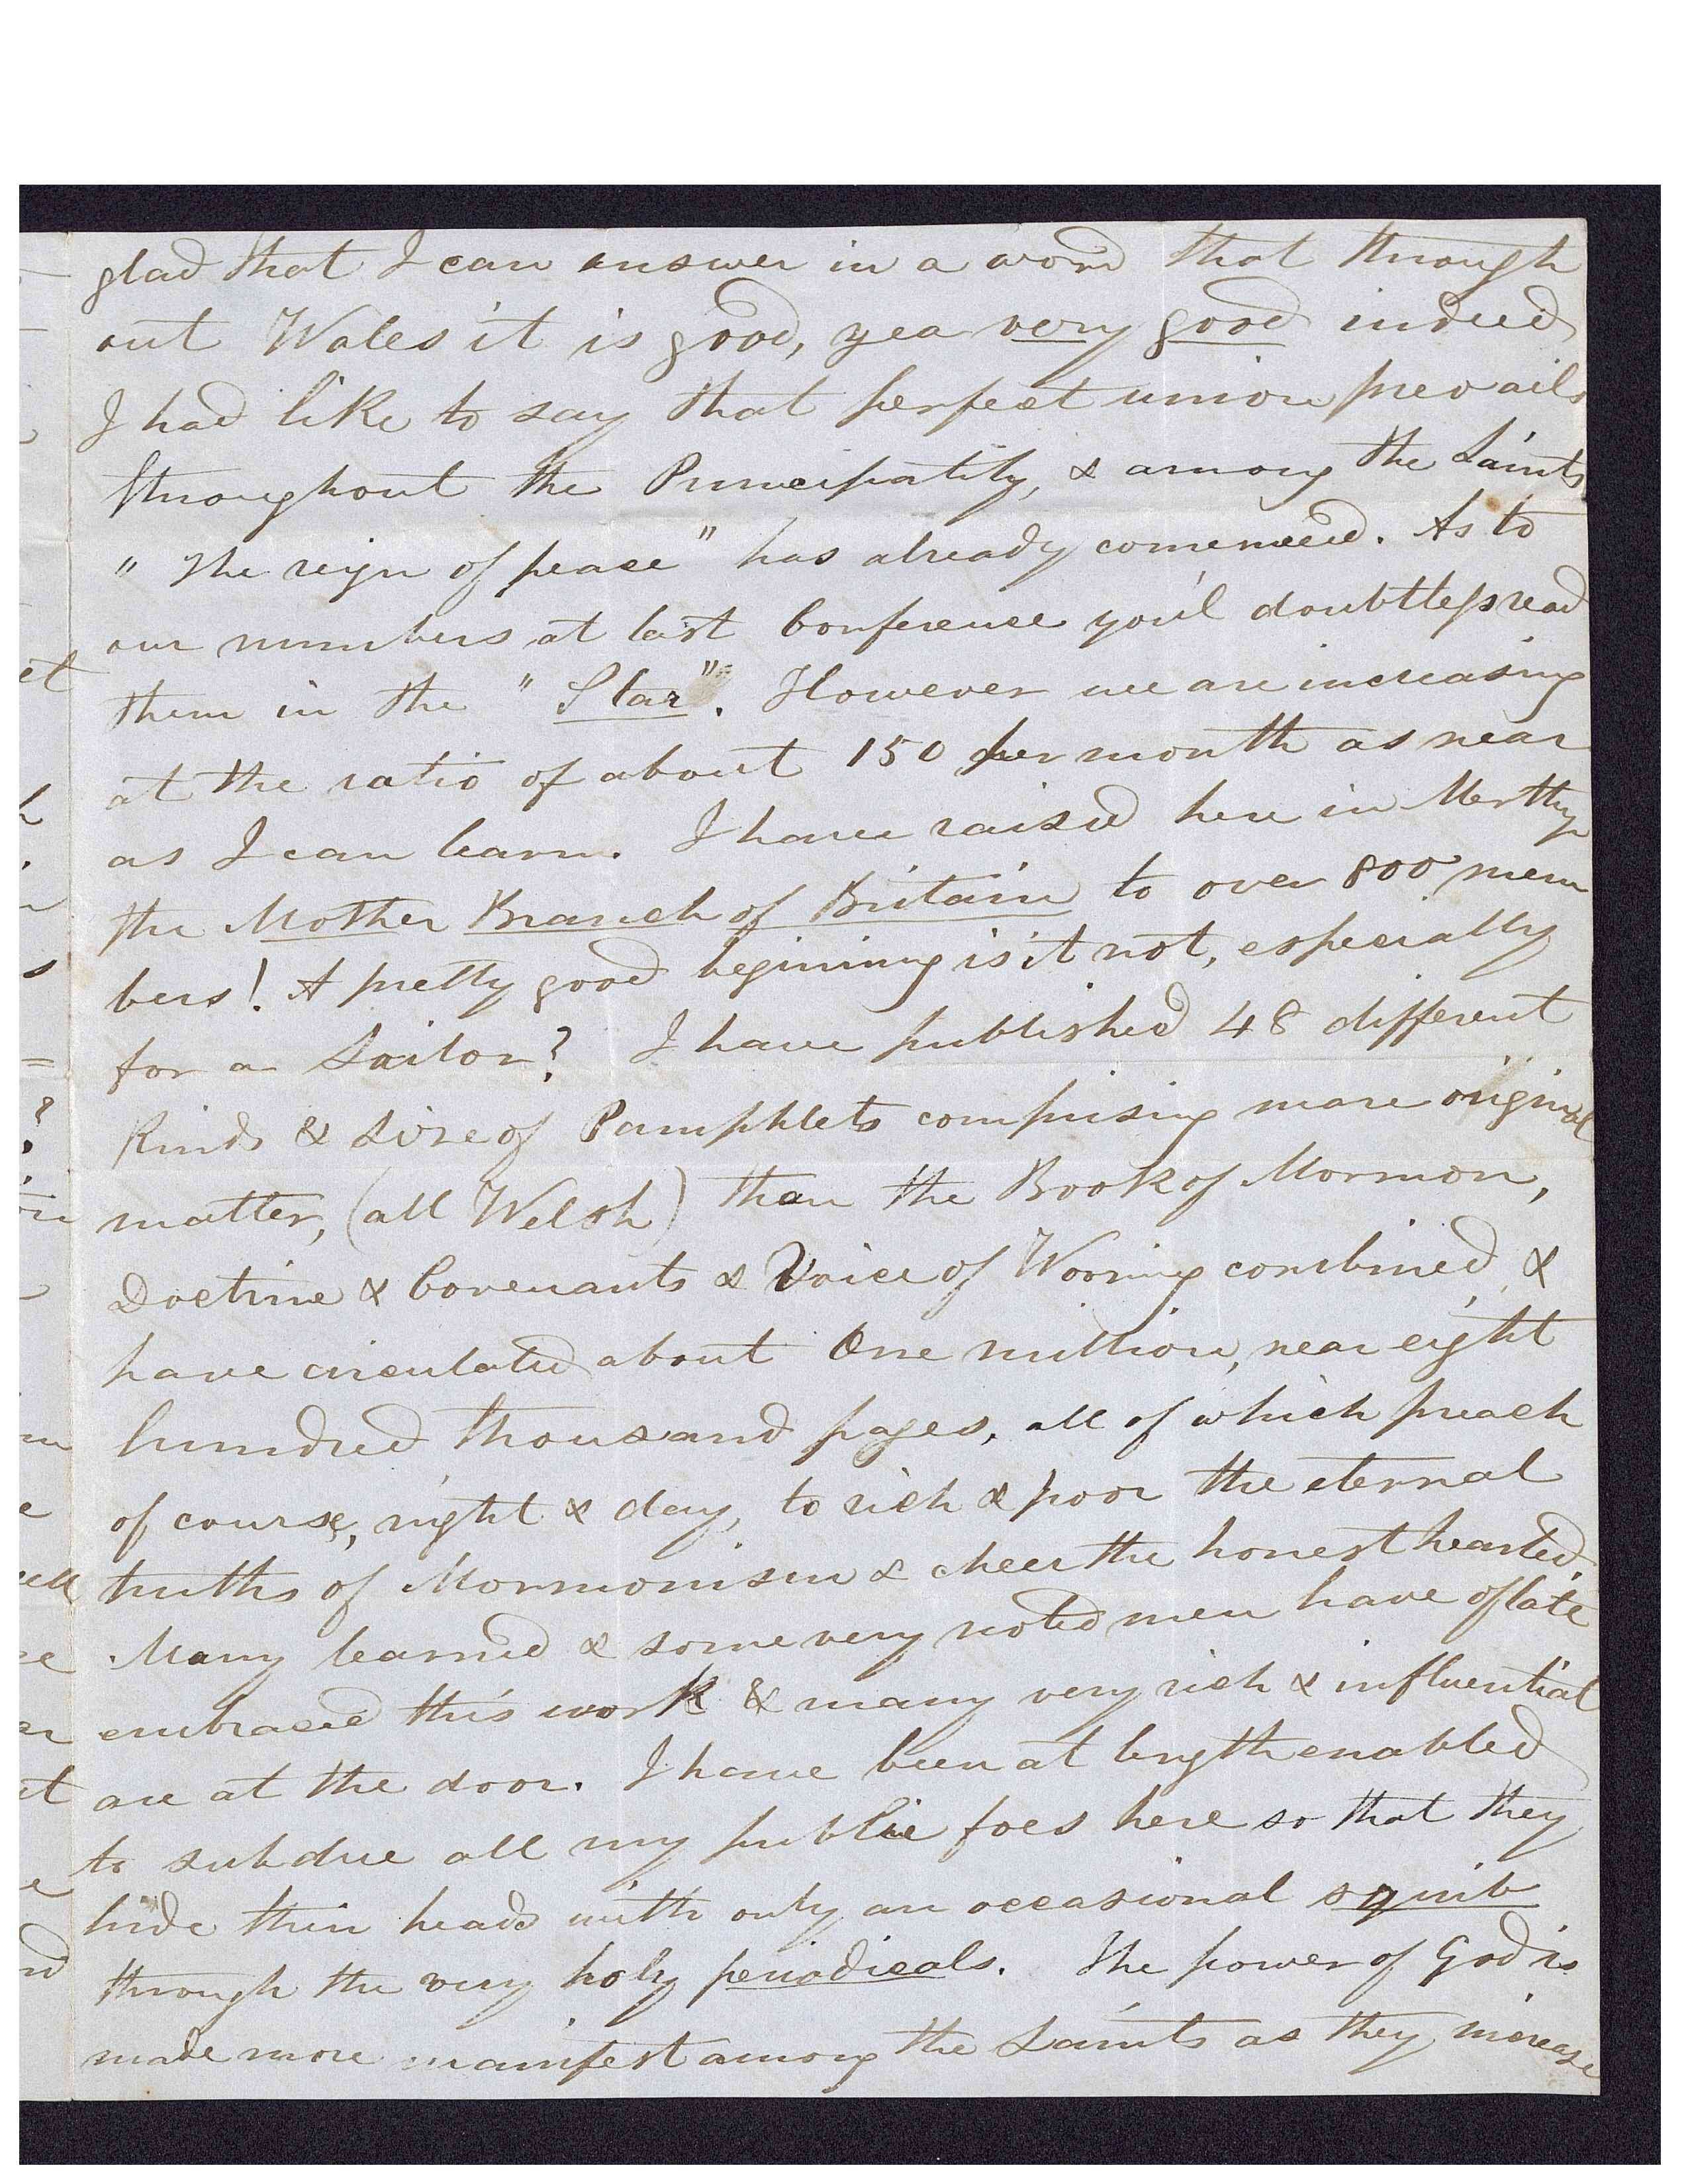 glad that I can answer in a word that through
out Wales it is good, yea very good indeed
I had like to say that perfect union prevails
throughout the Principality, & among the Saints
"The reign of peace" has already comenced. As to
our numbers at last Conference you'l doubtless read
them in the "Star". However we are increasing
at the ratio of about 150 per month as near
as I can learn. I have raised here in Merthyr
the Mother Branch of Britain to over 800 mem
bers! A pretty good begining is it not, especially
for a Sailor? I have published 48 different
Kinds & Size of Pamphlets comprising more original
matter, (all Welsh) than the Book of Mormon,
Doctrine & Covenants & Voice of Worning combined, &
have circulated about One million, near eight
hundred thousand pages, all of which preach
of course, night & day, to rich & poor the eternal
truths of Mormonism & cheer the honest hearted.
Many learned & some very noted men have of late
embraced this work & many very rich & influential
are at the door. I have been at length enabled
to subdue all my public foes here so that they
hide their heads with only an occasional squib
through the very holy periodicals. The power of God is
made more manifest among the Saints as they increase